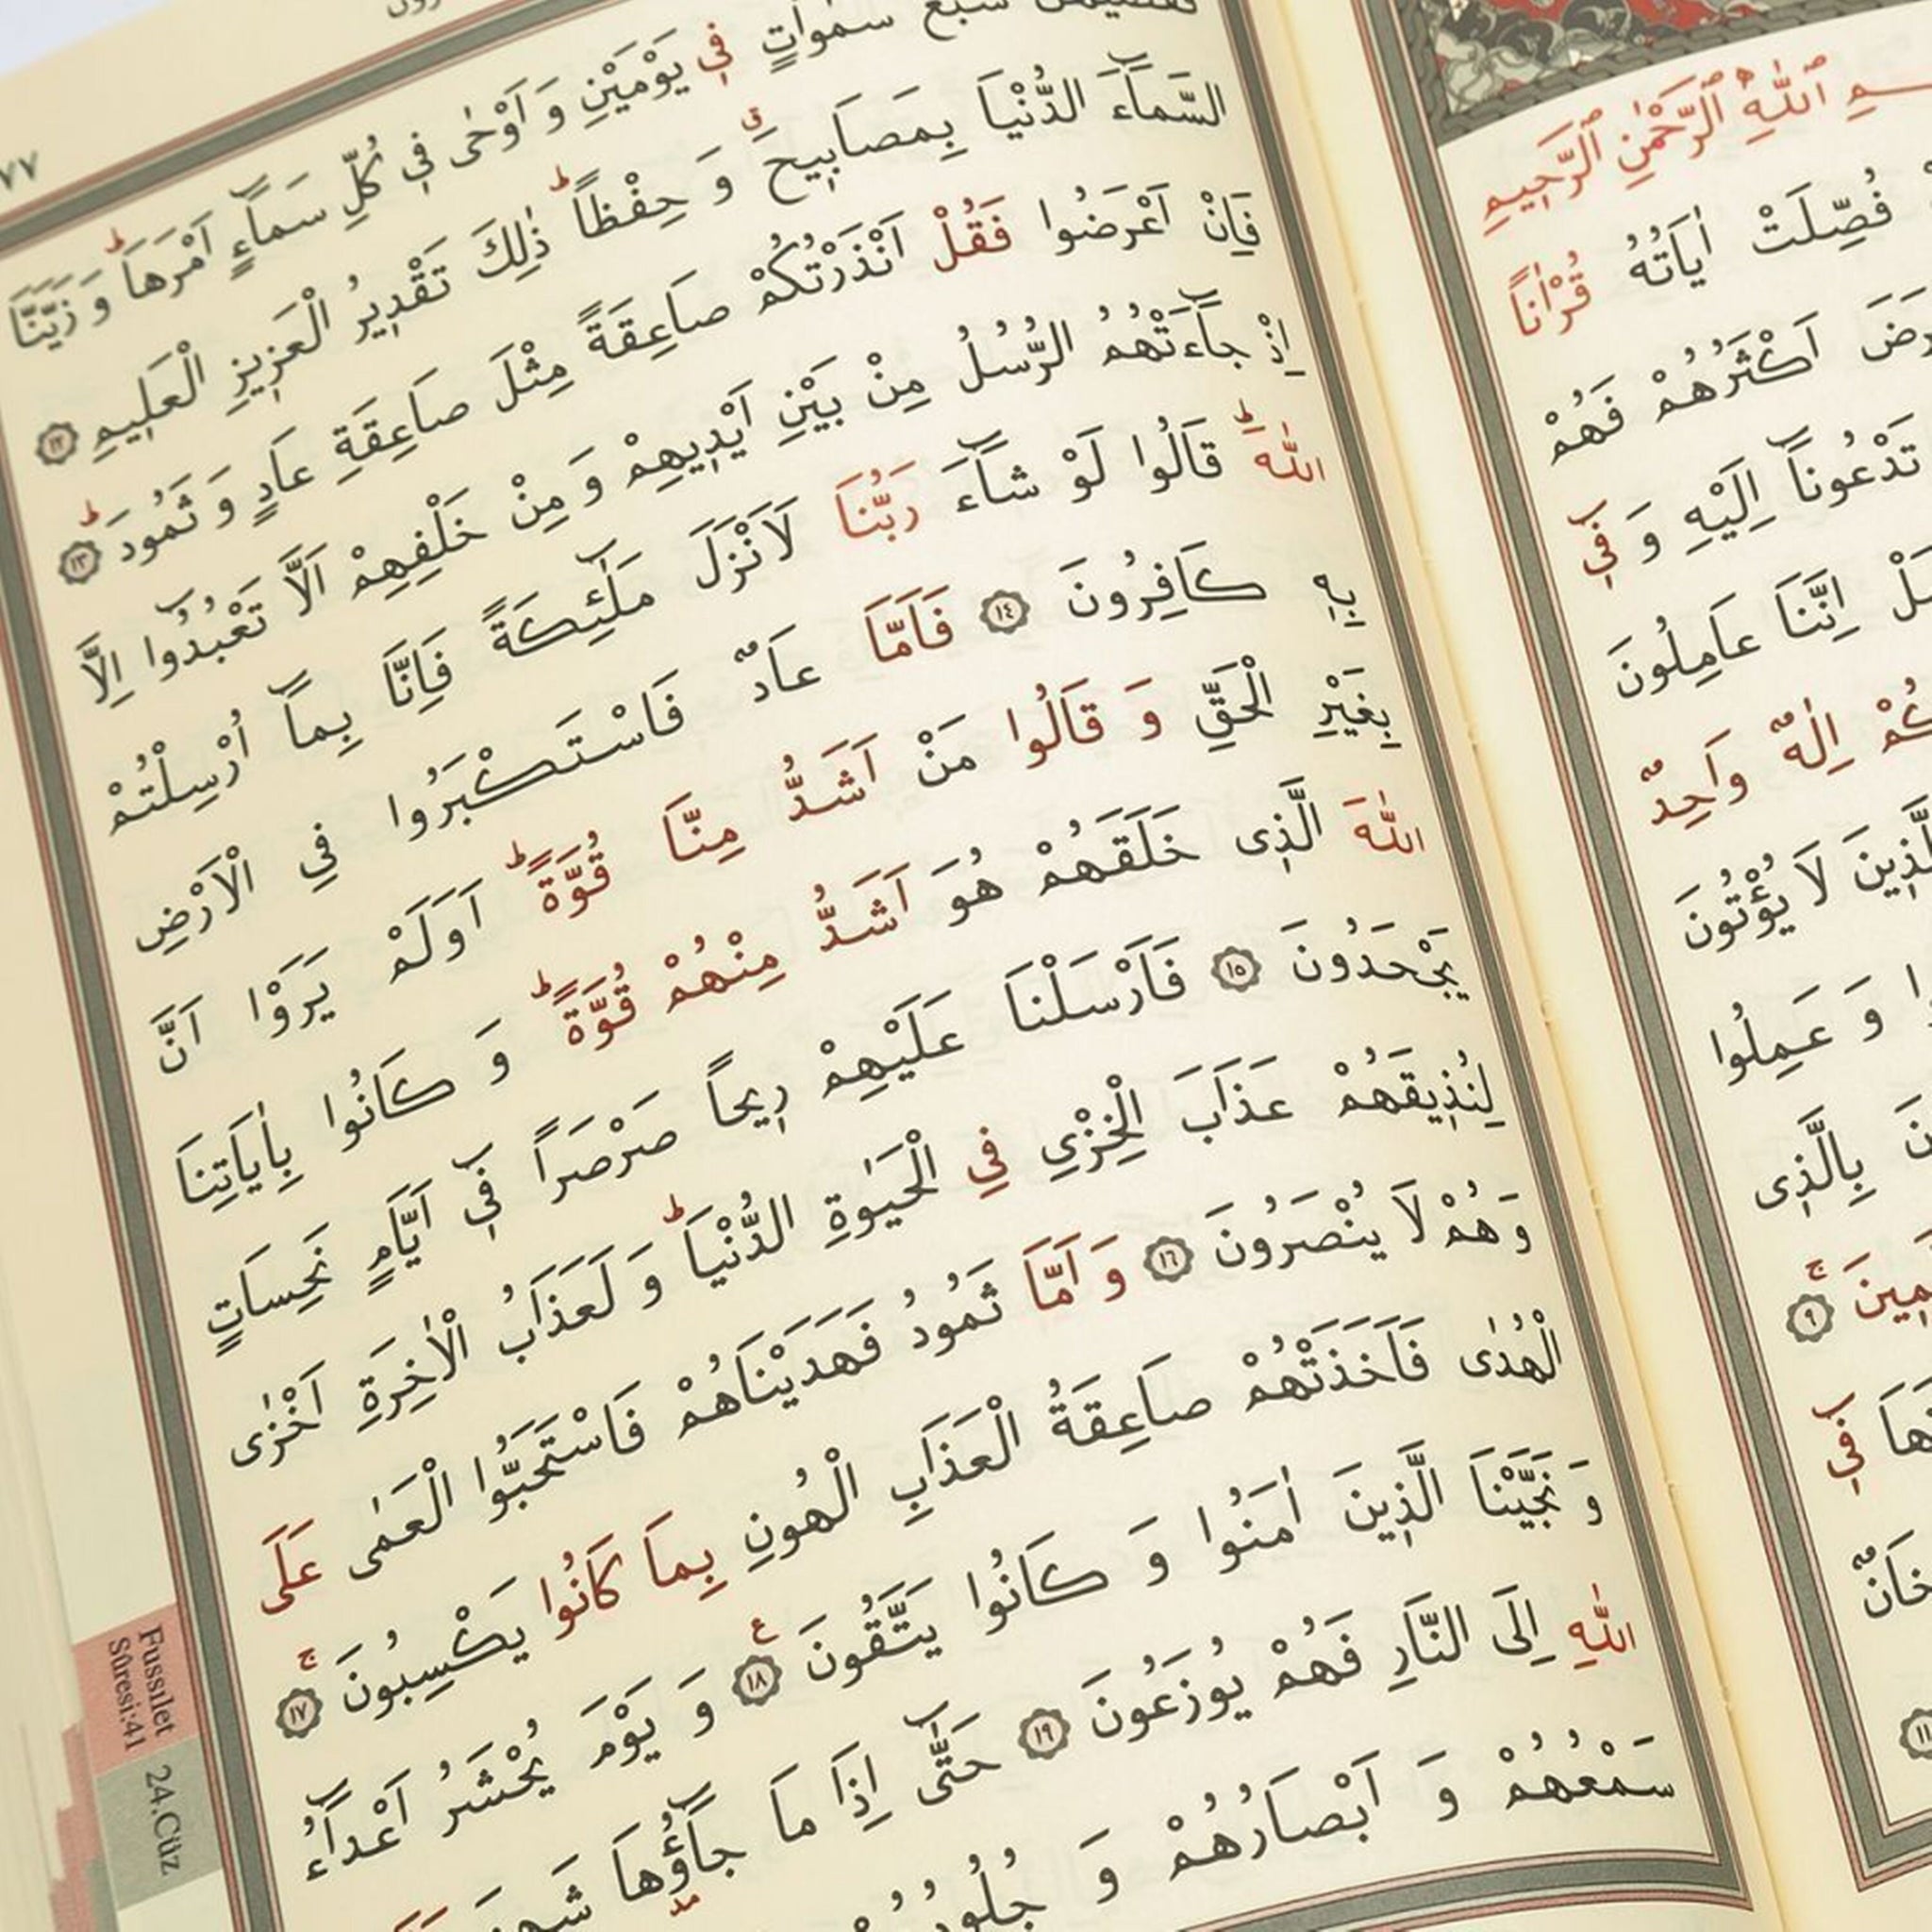 سَمٰوَاتٍ فٖي يَوْمَيْنِ وَ اَوْحٰى فٖي كُلِّ سَمَٓاءٍ اَمْرَهَاؕ وَ زَيَّنَّا
السَّمَٓاءَ الدُّنْيَا بِمَصَابٖيحَۗ وَ حِفْظاًؕ ذٰلِكَ تَقْدٖيرُ الْعَزٖيزِ الْعَلٖيمِ ١٢
فَاِنْ اَعْرَضُوا فَقُلْ اَنْذَرْتُكُمْ صَاعِقَةً مِثْلَ صَاعِقَةِ عَادٍ وَ ثَمُودَؕ ١٣
اِذْ جَٓاءَتْهُمُ الرُّسُلُ مِنْ بَيْنِ اَيْدٖيهِمْ وَ مِنْ خَلْفِهِمْ اَلَّا تَعْبُدُٓوا اِلَّا
اللّٰهَؕ قَالُوا لَوْ شَٓاءَ رَبُّنَا لَاَنْزَلَ مَلٰٓئِكَةً فَاِنَّا بِمَٓا اُرْسِلْتُمْ
بِهٖ كَافِرُونَ ١٤ فَاَمَّا عَادٌ فَاسْتَكْبَرُوا فِي الْاَرْضِ
بِغَيْرِ الْحَقِّ وَ قَالُوا مَنْ اَشَدُّ مِنَّا قُوَّةًؕ اَوَلَمْ يَرَوْا اَنَّ
اللّٰهَ الَّذٖى خَلَقَهُمْ هُوَ اَشَدُّ مِنْهُمْ قُوَّةًؕ وَ كَانُوا بِاٰيَاتِنَا
يَجْحَدُونَ ١٥ فَاَرْسَلْنَا عَلَيْهِمْ رٖيحاً صَرْصَراً فٖٓي اَيَّامٍ نَحِسَاتٍ
لِنُذٖيقَهُمْ عَذَابَ الْخِزْىِ فِي الْحَيٰوةِ الدُّنْيَاؕ وَ لَعَذَابُ الْاٰخِرَةِ اَخْزٰى
وَ هُمْ لَا يُنْصَرُونَ ١٦ وَ اَمَّا ثَمُودُ فَهَدَيْنَاهُمْ فَاسْتَحَبُّوا الْعَمٰى عَلَى
الْهُدٰى فَاَخَذَتْهُمْ صَاعِقَةُ الْعَذَابِ الْهُونِ بِمَا كَانُوا يَكْسِبُونَۚ ١٧
وَ نَجَّيْنَا الَّذٖينَ اٰمَنُوا وَ كَانُوا يَتَّقُونَ ع ١٨ وَ يَوْمَ يُحْشَرُ اَعْدَٓاءُ
اللّٰهِ اِلَى النَّارِ فَهُمْ يُوزَعُونَ ١٩ حَتّٰٓى اِذَا مَا جَٓاؤُ۫هَا
سَمْعُهُمْ وَ اَبْصَارُهُمْ وَ
Fussılet
Sûresi:41
24.Cüz
اللّٰهِ الرَّحْمٰنِ الرَّحٖيمِ
فُصِّلَتْ اٰيَاتُهُ قُرْاٰناً
اَكْثَرُهُمْ فَهُمْ
تَدْعُونَٓا اِلَيْهِ وَ فٖٓي
اِنَّنَا عَامِلُونَ
اِلٰهٌ وَاحِدٌ
لَا يُؤْتُونَ
وَ عَمِلُوا
بِالَّذٖى
٩
فٖي
١١